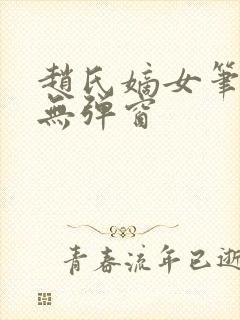 趙氏嫡女筆
無彈窗
青春流年已逝